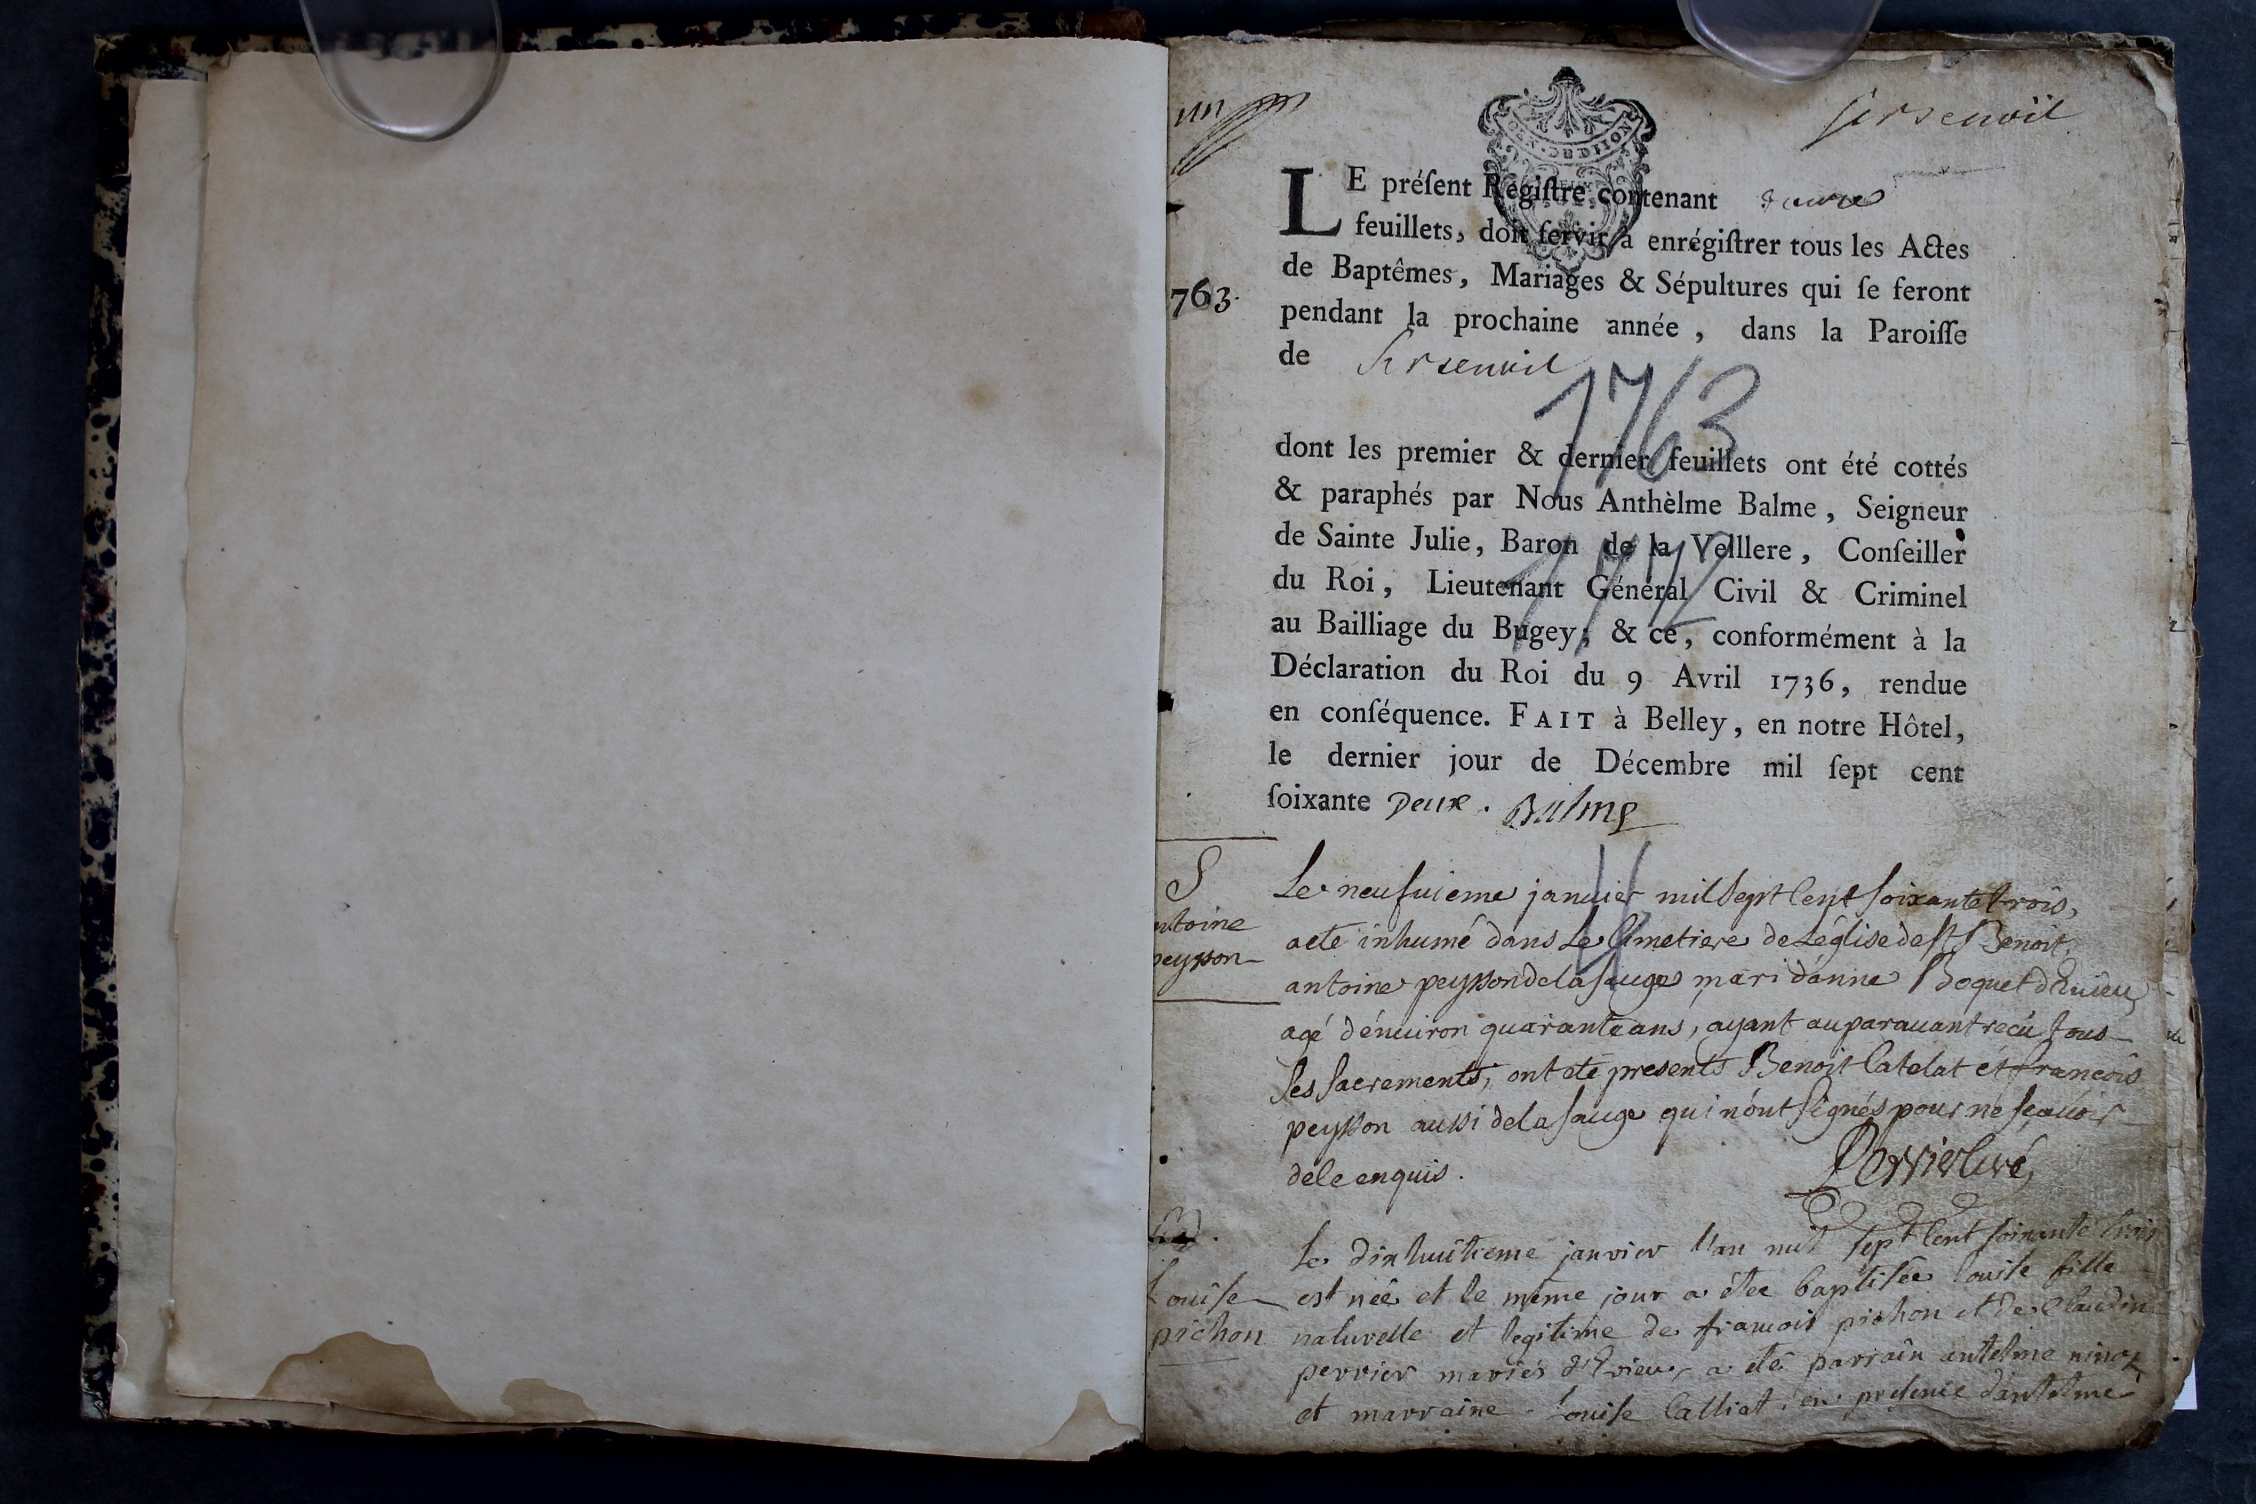 un
Serseuoil
GEN. DE DIJON
LE préſent Régiſtre contenant douze
feuillets, doit ſervir à enrégiſtrer tous les Actes
de Baptêmes, Mariages & Sépultures qui ſe feront
763.
pendant la prochaine année, dans la Paroiſſe
de Serseuoil
1763
dont les premier & dernier feuillets ont été cottés
& paraphés par Nous Anthèlme Balme, Seigneur
de Sainte Julie, Baron de la Velllere, Conſeiller
du Roi, Lieutenant Général Civil & Criminel
au Bailliage du Bugey; & ce, conformément à la
Déclaration du Roi du 9 Avril 1736, rendue
en conſéquence. FAIT à Belley, en notre Hôtel,
le dernier jour de Décembre mil ſept cent
ſoixante Deux. Balme
S
antoine
peysson
Le neufuieme januier mil sept cent soixante trois,
a eté inhumé dans Le Cimetiere de L'église de st Benoit,
antoine peysson de la sauge mari d'anne Boquet d'Euieu,
agé d'enuiron quarante ans, ayant auparauant recu tous
les sacrements, ont eté presents Benoit Catelat et francois
peysson aussi de la sauge qui n'ont signés pour ne sçauoir
de le enquis.
Perrier Curé,
Louise
pichon
Le dix huitieme janvier l'an mil sept cent soixante trois
est née et le même jour a étée baptisée louise fille
naturelle et legitime de francois pichon et de Claudine
perrier mariés d'Evieu, a été parrain antelme ninoz
et marraine louise Calliat en presence d'antelme